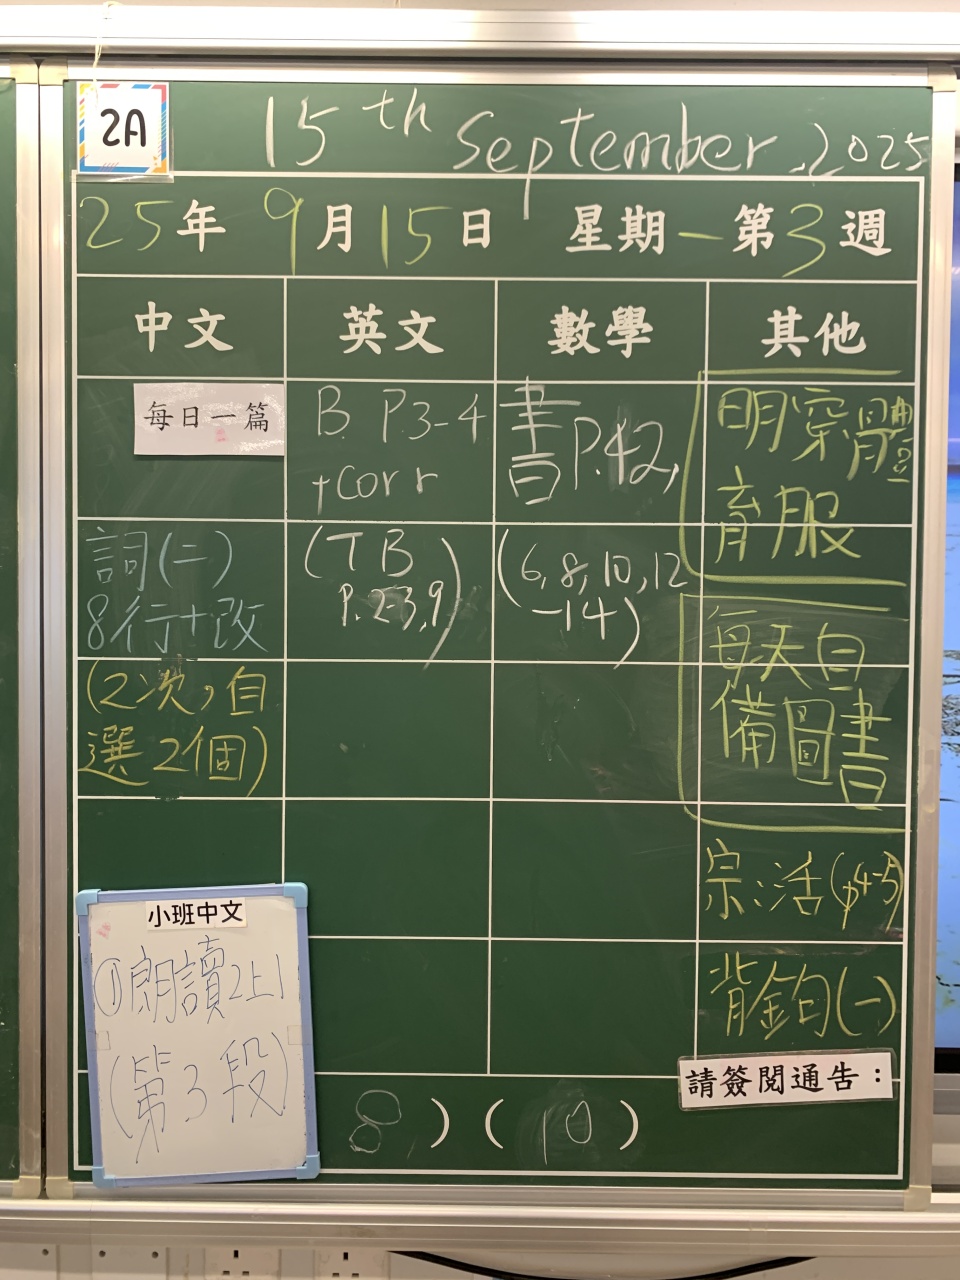 2A
15th September, 2025
25年 9月15日 星期一 第3週
中文 英文 數學 其他
每日一篇
詞(二)
8行+改
(2次，自
選2個)
小班中文
①朗讀2上1
(第3段)
B. P.3-4
+corr
(TB
P.2-3,9)
書P.42,
(6,8,10,12
-14)
明穿體
育服
每天自
備圖書
宗:活(p4-5)
背金句(一)
請簽閱通告：
8 ) ( 10 )